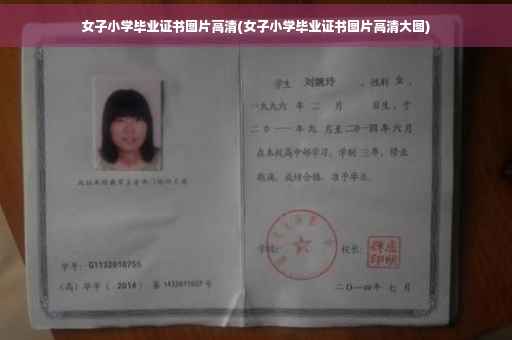 女子小学毕业证书图片高清(女子小学毕业证书图片高清大图)
学生 刘婉玲 ，性别 女 ，
一九九六 年 二 月 日生，于
二〇一一 年 九 月至 二〇一四 年 六 月
在本校高中部学习，学制 三 年，修业
期满，成绩合格，准予毕业。
学号： G1132010755
(高) 毕字 ( 2014 ) 第 1432011027 号
学校：
校长：
二〇一四年 七 月